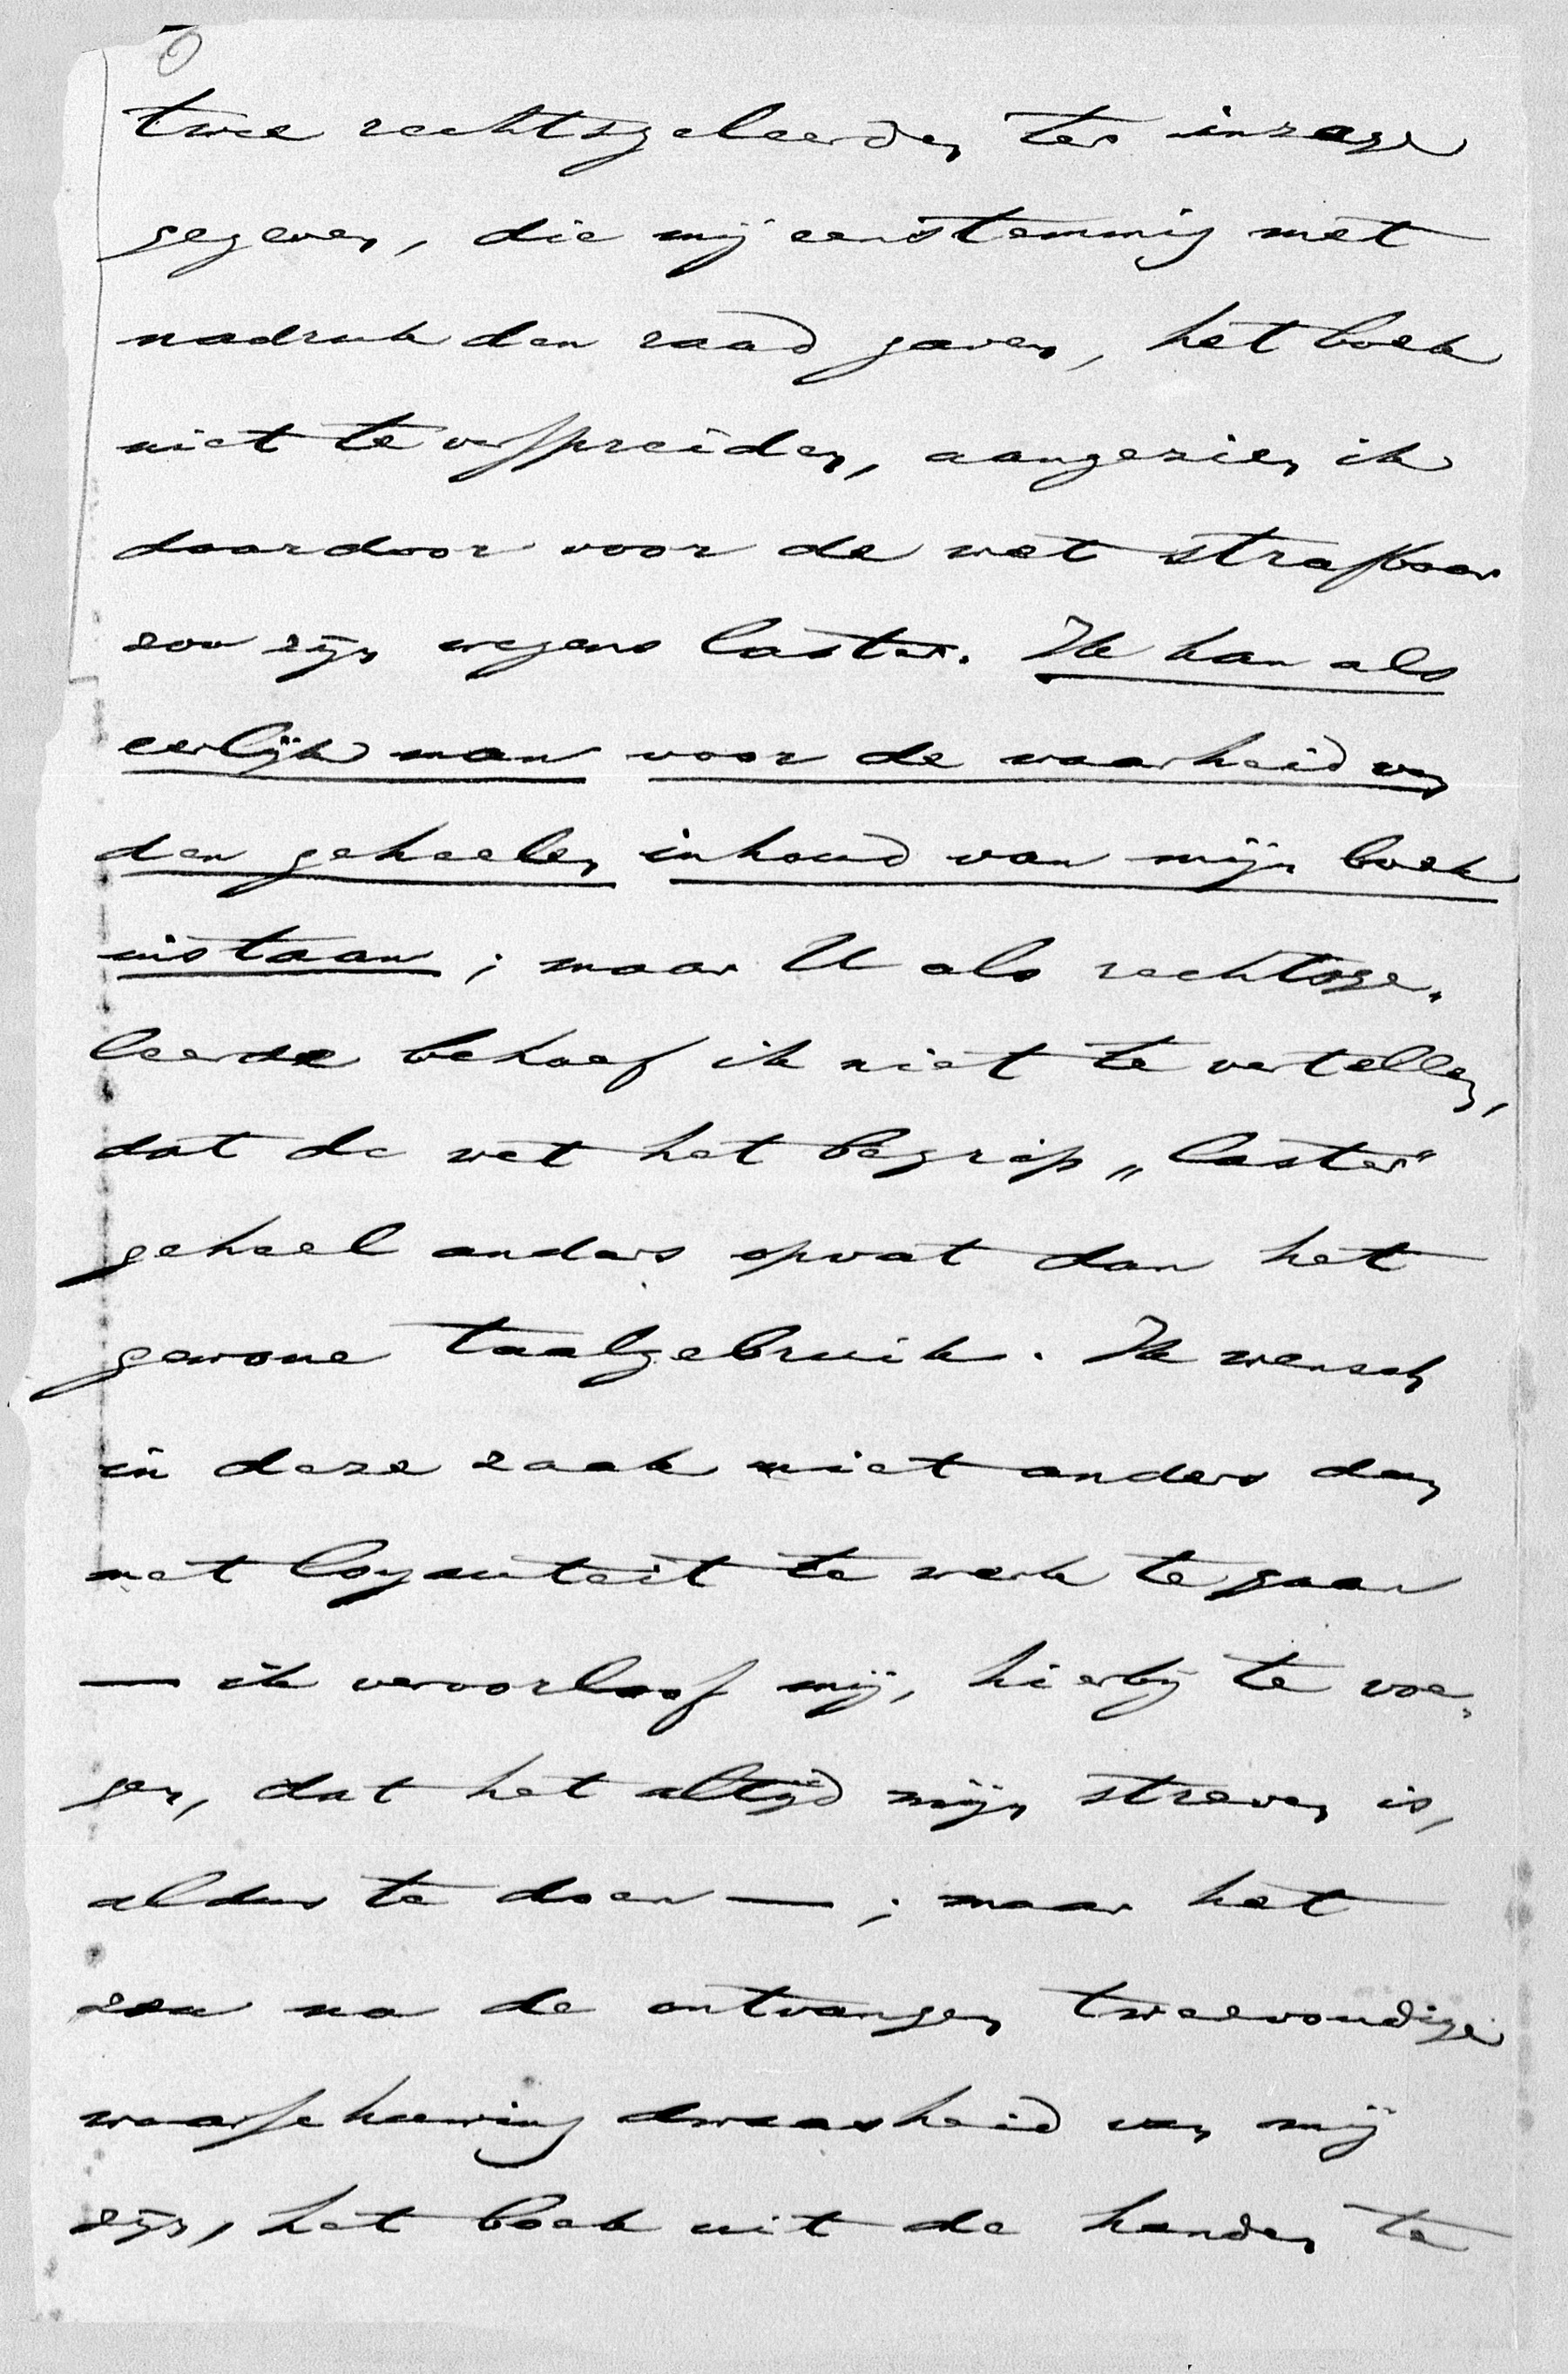 twee rechtsgeleerden ter inzage
gegeven, die mij eenstemmig met
nadruk den raad gaven, het boek
niet te verspreiden, aangezien ik
daardoor voor de wet strafbaar
zou zijn wegens laster. Ik kan als
eerlijk man voor de waarheid van
den geheelen inhoud van mijn boek
instaan; maar U als rechtsge-
leerde behoef ik niet te vertellen,
dat de wet het begrip „laster“
geheel anders opvat dan het
gewone taalgebruik. Ik wensch
in deze zaak niet anders dan
met loyauteit te werk te gaan
— ik veroorloof mij, hierbij te voe-
gen, dat het altijd mijn streven is,
aldus te doen —; maar het
zou na de ontvangen tweevoudige
waarschuwing dwaasheid van mij
zijn, het boek uit de handen te